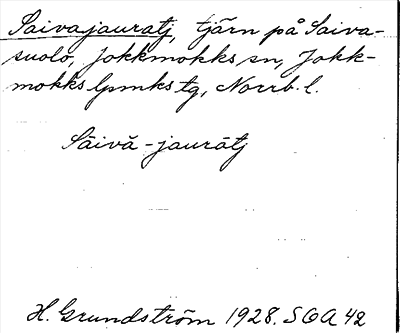 Saivajauratj, tjärn på Saiva-
suolo, Jokkmokks sn, Jokk-
mokks lpmks tg, Norrb. l.
Säivă-jaurātj
H. Grundström 1928. SOA 42